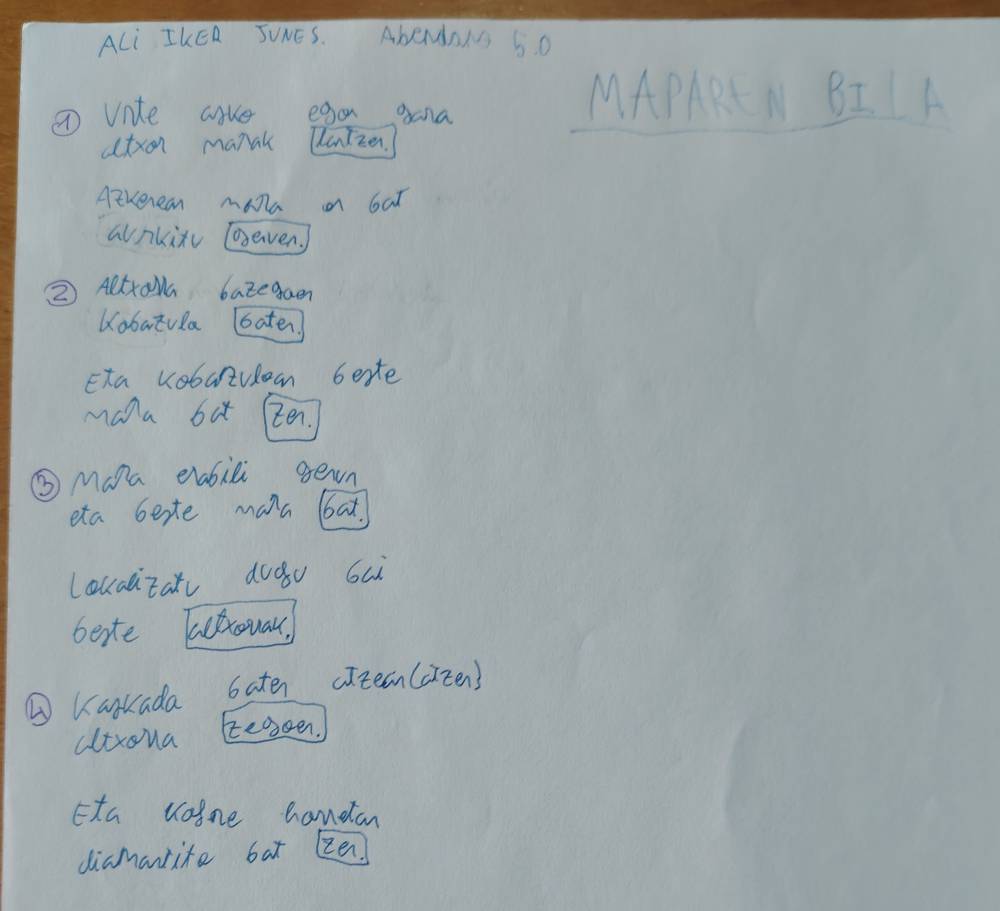 ALI IKER JUNES. Abendans 5.0
MAPAREN BILA
① Urte asko egon gara
altxor mapak
Azkenean mapa on bat
aurkitu genuen.
② Altxorra bazegoen
Kobazulo baten.
Eta kobazuloan beste
mapa bat zen.
③ Mapa erabili genun
eta beste mapa bat.
Lokalizatu dugu bai
beste altxorrak.
④ Kaskada baten atzean (atzen)
altxorra zegoen.
Eta kofre horretan
diamantito bat zen.